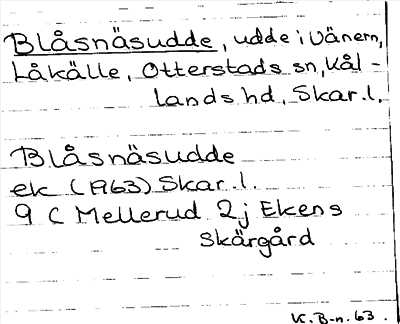 Blåsnäsudde, udde i Vänern,
Låkälle, Otterstads sn, Kål-
lands hd, Skar. l.
Blåsnäsudde
ek (1963) Skar. l.
9 C Mellerud 2j Ekens
Skärgård
K. B-n. 63.